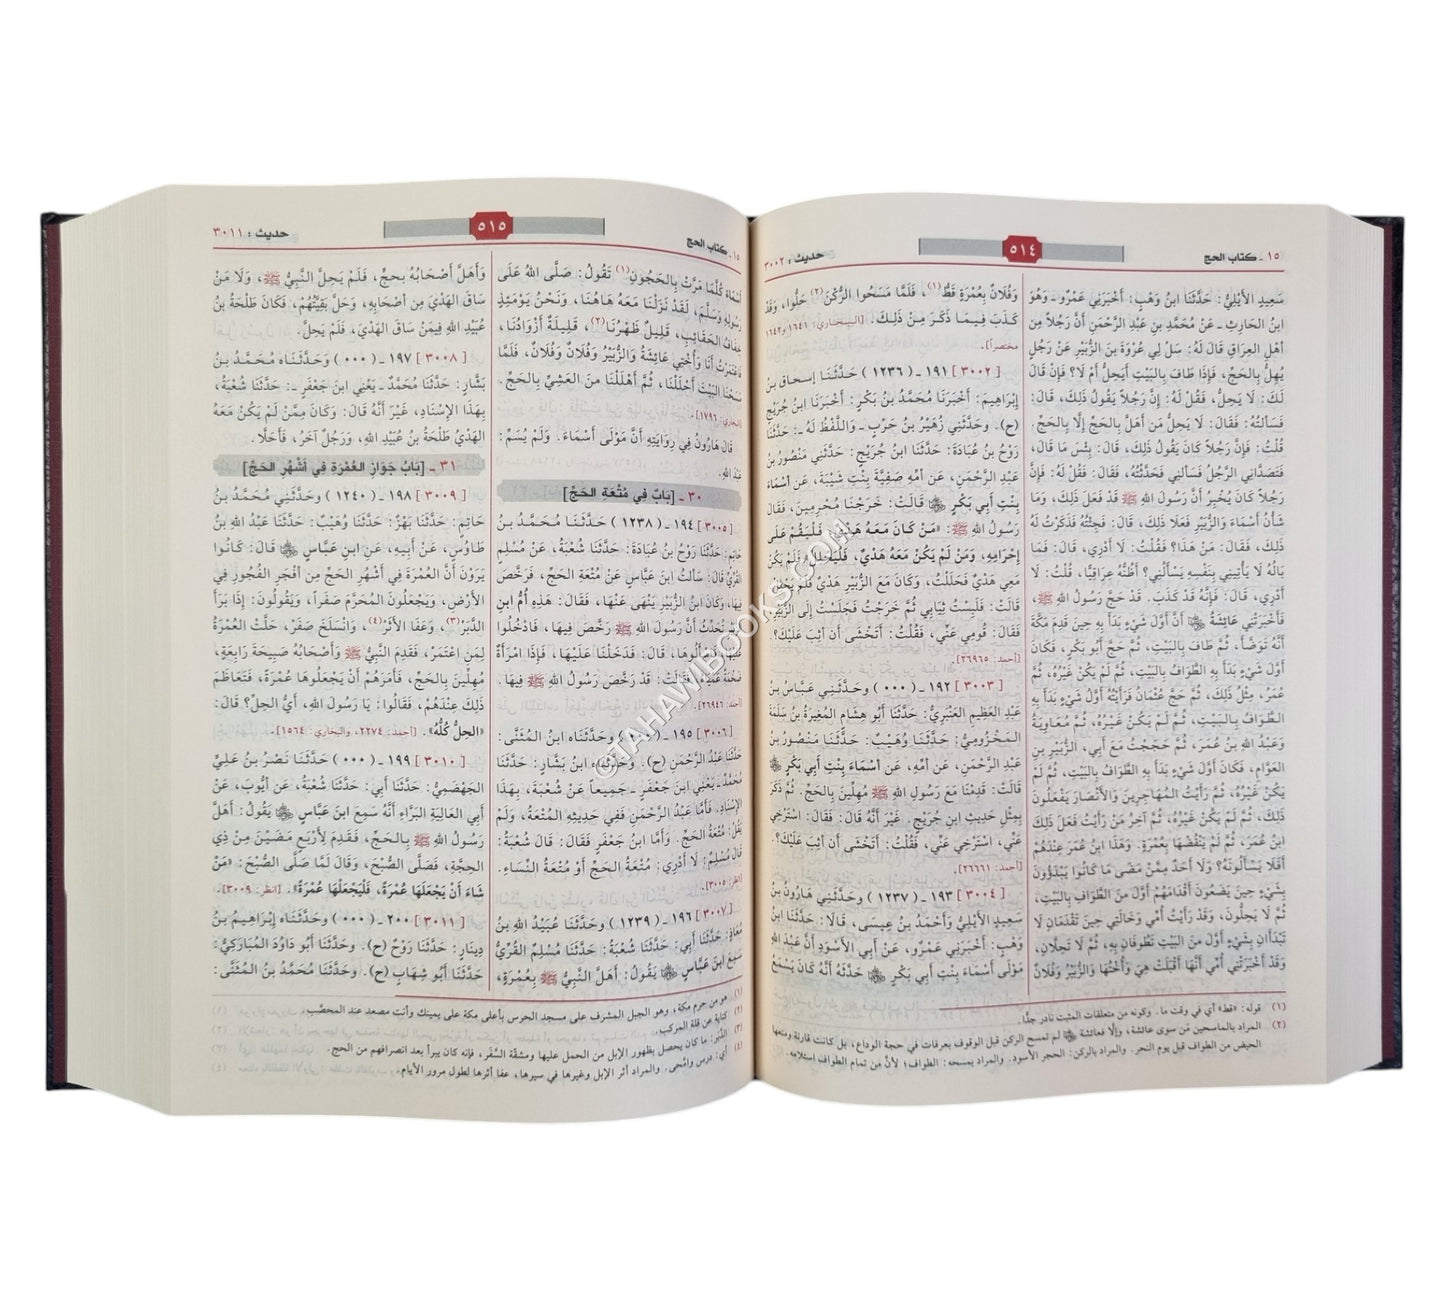 ١٥ ـ كتاب الحج
٥١٤
حديث : ٣٠٠٢
سَعِيدٍ الأَيْلِيُّ: حَدَّثَنَا ابنُ وَهْبٍ: أَخْبَرَنِي عَمْرٌو ـ وَهُوَ
ابنُ الحَارِثِ ـ عَنْ مُحَمَّدِ بنِ عَبْدِ الرَّحْمَنِ أَنَّ رَجُلاً مِنْ
أَهْلِ العِرَاقِ قَالَ لَهُ: سَلْ لِي عُرْوَةَ بنَ الزُّبَيْرِ عَنْ رَجُلٍ
يُهِلُّ بِالحَجِّ، فَإِذَا طَافَ بِالبَيْتِ أَيَحِلُّ أَمْ لَا؟ فَإِنْ قَالَ
لَكَ: لَا يَحِلُّ، فَقُلْ لَهُ: إِنَّ رَجُلاً يَقُولُ ذَلِكَ، قَالَ:
فَسَأَلْتُهُ: فَقَالَ: لَا يَحِلُّ مَنْ أَهَلَّ بِالحَجِّ إِلَّا بِالحَجِّ.
قُلْتُ: فَإِنَّ رَجُلاً كَانَ يَقُولُ ذَلِكَ، قَالَ: بِئْسَ مَا قَالَ،
فَتَصَدَّانِي الرَّجُلُ فَسَأَلَنِي فَحَدَّثْتُهُ، فَقَالَ: فَقُلْ لَهُ: فَإِنَّ
رَجُلاً كَانَ يُخْبِرُ أَنَّ رَسُولَ اللهِ ﷺ قَدْ فَعَلَ ذَلِكَ، وَمَا
شَأْنُ أَسْمَاءَ وَالزُّبَيْرِ فَعَلَا ذَلِكَ، قَالَ: فَجِئْتُهُ فَذَكَرْتُ لَهُ
ذَلِكَ، فَقَالَ: مَنْ هَذَا؟ فَقُلْتُ: لَا أَدْرِي، قَالَ: فَمَا
بَالُهُ لَا يَأْتِينِي بِنَفْسِهِ يَسْأَلُنِي؟ أَظُنُّهُ عِرَاقِيًّا، قُلْتُ: لَا
أَدْرِي، قَالَ: فَإِنَّهُ قَدْ كَذَبَ. قَدْ حَجَّ رَسُولُ اللهِ ﷺ،
فَأَخْبَرَتْنِي عَائِشَةُ أَنَّ أَوَّلَ شَيْءٍ بَدَأَ بِهِ حِينَ قَدِمَ مَكَّةَ
أَنَّهُ تَوَضَّأَ، ثُمَّ طَافَ بِالبَيْتِ، ثُمَّ حَجَّ أَبُو بَكْرٍ، فَكَانَ
أَوَّلَ شَيْءٍ بَدَأَ بِهِ الطَّوَافُ بِالبَيْتِ، ثُمَّ لَمْ يَكُنْ غَيْرُهُ، ثُمَّ
عُمَرُ، مِثْلُ ذَلِكَ، ثُمَّ حَجَّ عُثْمَانُ فَرَأَيْتُهُ أَوَّلُ شَيْءٍ بَدَأَ بِهِ
الطَّوَافُ بِالبَيْتِ، ثُمَّ لَمْ يَكُنْ غَيْرُهُ، ثُمَّ مُعَاوِيَةُ
وَعَبْدُ اللهِ بنُ عُمَرَ، ثُمَّ حَجَجْتُ مَعَ أَبِي، الزُّبَيْرِ بنِ
العَوَّامِ، فَكَانَ أَوَّلَ شَيْءٍ بَدَأَ بِهِ الطَّوَافُ بِالبَيْتِ، ثُمَّ لَمْ
يَكُنْ غَيْرُهُ، ثُمَّ رَأَيْتُ المُهَاجِرِينَ وَالأَنْصَارَ يَفْعَلُونَ
ذَلِكَ، ثُمَّ لَمْ يَكُنْ غَيْرُهُ، ثُمَّ آخِرُ مَنْ رَأَيْتُ فَعَلَ ذَلِكَ
ابنُ عُمَرَ، ثُمَّ لَمْ يَنْقُضْهَا بِعُمْرَةٍ. وَهَذَا ابنُ عُمَرَ عِنْدَهُمْ
أَفَلَا يَسْأَلُونَهُ؟ وَلَا أَحَدٌ مِمَّنْ مَضَى مَا كَانُوا يَبْدَؤُونَ
بِشَيْءٍ حِينَ يَضَعُونَ أَقْدَامَهُمْ أَوَّلَ مِنَ الطَّوَافِ بِالبَيْتِ،
ثُمَّ لَا يَحِلُّونَ، وَقَدْ رَأَيْتُ أُمِّي وَخَالَتِي حِينَ تَقْدَمَانِ لَا
تَبْدَأَانِ بِشَيْءٍ أَوَّلَ مِنَ البَيْتِ تَطُوفَانِ بِهِ، ثُمَّ لَا تَحِلَّانِ،
وَقَدْ أَخْبَرَتْنِي أُمِّي أَنَّهَا أَقْبَلَتْ هِيَ وَأُخْتُهَا وَالزُّبَيْرُ وَفُلَانٌ
وَفُلَانٌ بِعُمْرَةٍ قَطُّ(١)، فَلَمَّا مَسَحُوا الرُّكْنَ(٢) حَلُّوا، وَقَدْ
كَذَبَ فِيمَا ذَكَرَ مِنْ ذَلِكَ. [البخاري: ١٦٤١ و١٦٤٢
مختصراً].
[٣٠٠٢] ١٩١ ـ (١٢٣٦) حَدَّثَنَا إِسحاقُ بنُ
إِبْرَاهِيمَ: أَخْبَرَنَا مُحَمَّدُ بنُ بَكْرٍ: أَخْبَرَنَا ابنُ جُرَيْجٍ
(ح). وحَدَّثَنِي زُهَيْرُ بنُ حَرْبٍ ـ وَاللَّفْظُ لَهُ ـ: حَدَّثَنَا
رَوْحُ بنُ عُبَادَةَ: حَدَّثَنَا ابنُ جُرَيْجٍ: حَدَّثَنِي مَنْصُورُ بنُ
عَبْدِ الرَّحْمَنِ، عَنْ أُمِّهِ صَفِيَّةَ بِنْتِ شَيْبَةَ، عَنْ أَسْمَاءَ
بِنْتِ أَبِي بَكْرٍ قَالَتْ: خَرَجْنَا مُحْرِمِينَ، فَقَالَ
رَسُولُ اللهِ ﷺ: «مَنْ كَانَ مَعَهُ هَدْيٌ، فَلْيَقُمْ عَلَى
إِحْرَامِهِ، وَمَنْ لَمْ يَكُنْ مَعَهُ هَدْيٌ، فَلْيَحْلِلْ» فَلَمْ يَكُنْ
مَعِي هَدْيٌ فَحَلَلْتُ، وَكَانَ مَعَ الزُّبَيْرِ هَدْيٌ فَلَمْ يَحْلِلْ
قَالَتْ: فَلَبِسْتُ ثِيَابِي ثُمَّ خَرَجْتُ فَجَلَسْتُ إِلَى الزُّبَيْرِ،
فَقَالَ: قُومِي عَنِّي، فَقُلْتُ: أَتَخْشَى أَنْ أَثِبَ عَلَيْكَ؟.
[أحمد: ٢٦٩٦٥].
[٣٠٠٣] ١٩٢ ـ (٠٠٠) وحَدَّثَنِي عَبَّاسُ بنُ
عَبْدِ العَظِيمِ العَنْبَرِيُّ: حَدَّثَنَا أَبُو هِشَامٍ المُغِيرَةُ بنُ سَلَمَةَ
المَخْزُومِيُّ: حَدَّثَنَا وُهَيْبٌ: حَدَّثَنَا مَنْصُورُ بنُ
عَبْدِ الرَّحْمَنِ، عَنْ أُمِّهِ، عَنْ أَسْمَاءَ بِنْتِ أَبِي بَكْرٍ
قَالَتْ: قَدِمْنَا مَعَ رَسُولِ اللهِ ﷺ مُهِلِّينَ بِالحَجِّ. ثُمَّ ذَكَرَ
بِمِثْلِ حَدِيثِ ابنِ جُرَيْجٍ، غَيْرَ أَنَّهُ قَالَ: فَقَالَ: اسْتَرْخِي
عَنِّي، اسْتَرْخِي عَنِّي، فَقُلْتُ: أَتَخْشَى أَنْ أَثِبَ عَلَيْكَ؟.
[أحمد: ٢٦٦٦١].
[٣٠٠٤] ١٩٣ ـ (١٢٣٧) وحَدَّثَنِي هَارُونُ بنُ
سَعِيدٍ الأَيْلِيُّ وَأَحْمَدُ بنُ عِيسَى، قَالَا: حَدَّثَنَا ابنُ
وَهْبٍ: أَخْبَرَنِي عَمْرٌو، عَنْ أَبِي الأَسْوَدِ أَنَّ عَبْدَ اللهِ
مَوْلَى أَسْمَاءَ بِنْتِ أَبِي بَكْرٍ حَدَّثَهُ أَنَّهُ كَانَ يَسْمَعُ
(١) قوله: «قط» أي في وقت ما. وكونه من متعلقات المثبت نادر جدًّا.
(٢) المراد بالماسحين مَن سوى عائشة، وإلّا فعائشة لم تمسح الركن قبل الوقوف بعرفات في حجة الوداع، بل كانت قارنة ومنعها
الحيض من الطواف قبل يوم النحر. والمراد بالركن: الحجر الأسود. والمراد بمسحه: الطواف؛ لأنَّ من تمام الطواف استلامه.
١٥ ـ كتاب الحج
٥١٥
حديث : ٣٠١١
أَسْمَاءَ كُلَّمَا مَرَّتْ بِالحَجُونِ(١) تَقُولُ: صَلَّى اللهُ عَلَى
رَسُولِهِ وَسَلَّمَ، لَقَدْ نَزَلْنَا مَعَهُ هَاهُنَا، وَنَحْنُ يَوْمَئِذٍ
خِفَافُ الحَقَائِبِ، قَلِيلٌ ظَهْرُنَا(٢)، قَلِيلَةٌ أَزْوَادُنَا،
فَاعْتَمَرْتُ أَنَا وَأُخْتِي عَائِشَةُ وَالزُّبَيْرُ وَفُلَانٌ وَفُلَانٌ، فَلَمَّا
مَسَحْنَا البَيْتَ أَحْلَلْنَا، ثُمَّ أَهْلَلْنَا مِنَ العَشِيِّ بِالحَجِّ.
[البخاري: ١٧٩٦].
قَالَ هَارُونُ فِي رِوَايَتِهِ أَنَّ مَوْلَى أَسْمَاءَ. وَلَمْ يُسَمِّ:
عَبْدَ اللهِ.
٣٠ ـ [بَابٌ فِي مُتْعَةِ الحَجِّ]
[٣٠٠٥] ١٩٤ ـ (١٢٣٨) حَدَّثَنَا مُحَمَّدُ بنُ
حَاتِمٍ: حَدَّثَنَا رَوْحُ بنُ عُبَادَةَ: حَدَّثَنَا شُعْبَةُ، عَنْ مُسْلِمٍ
القُرِّيِّ قَالَ: سَأَلْتُ ابنَ عَبَّاسٍ عَنْ مُتْعَةِ الحَجِّ، فَرَخَّصَ
فِيهَا، وَكَانَ ابنُ الزُّبَيْرِ يَنْهَى عَنْهَا، فَقَالَ: هَذِهِ أُمُّ ابنِ
الزُّبَيْرِ تُحَدِّثُ أَنَّ رَسُولَ اللهِ ﷺ رَخَّصَ فِيهَا، فَادْخُلُوا
عَلَيْهَا فَاسْأَلُوهَا، قَالَ: فَدَخَلْنَا عَلَيْهَا، فَإِذَا امْرَأَةٌ
ضَخْمَةٌ عَمْيَاءُ، فَقَالَتْ: قَدْ رَخَّصَ رَسُولُ اللهِ ﷺ فِيهَا.
[أحمد: ٢٦٩٤٦].
[٣٠٠٦] ١٩٥ ـ (٠٠٠) وحَدَّثَنَاه ابنُ المُثَنَّى:
حَدَّثَنَا عَبْدُ الرَّحْمَنِ (ح). وحَدَّثَنَاه ابنُ بَشَّارٍ: حَدَّثَنَا
مُحَمَّدٌ ـ يَعْنِي ابنَ جَعْفَرٍ ـ جَمِيعاً عَنْ شُعْبَةَ، بِهَذَا
الإِسْنَادِ. فَأَمَّا عَبْدُ الرَّحْمَنِ فَفِي حَدِيثِهِ المُتْعَةُ، وَلَمْ
يَقُلْ: مُتْعَةُ الحَجِّ. وَأَمَّا ابنُ جَعْفَرٍ فَقَالَ: قَالَ شُعْبَةُ:
قَالَ مُسْلِمٌ: لَا أَدْرِي: مُتْعَةُ الحَجِّ أَوْ مُتْعَةُ النِّسَاءِ.
[انظر: ٣٠٠٥].
[٣٠٠٧] ١٩٦ ـ (١٢٣٩) وحَدَّثَنَا عُبَيْدُ اللهِ بنُ
مُعَاذٍ: حَدَّثَنَا أَبِي: حَدَّثَنَا شُعْبَةُ: حَدَّثَنَا مُسْلِمٌ القُرِّيُّ
سَمِعَ ابنَ عَبَّاسٍ يَقُولُ: أَهَلَّ النَّبِيُّ ﷺ بِعُمْرَةٍ،
وَأَهَلَّ أَصْحَابُهُ بِحَجٍّ، فَلَمْ يَحِلَّ النَّبِيُّ ﷺ، وَلَا مَنْ
سَاقَ الهَدْيَ مِنْ أَصْحَابِهِ، وَحَلَّ بَقِيَّتُهُمْ، فَكَانَ طَلْحَةُ بنُ
عُبَيْدِ اللهِ فِيمَنْ سَاقَ الهَدْيَ، فَلَمْ يَحِلَّ.
[٣٠٠٨] ١٩٧ ـ (٠٠٠) وحَدَّثَنَاه مُحَمَّدُ بنُ
بَشَّارٍ: حَدَّثَنَا مُحَمَّدٌ ـ يَعْنِي ابنَ جَعْفَرٍ ـ: حَدَّثَنَا شُعْبَةُ،
بِهَذَا الإِسْنَادِ، غَيْرَ أَنَّهُ قَالَ: وَكَانَ مِمَّنْ لَمْ يَكُنْ مَعَهُ
الهَدْيُ طَلْحَةُ بنُ عُبَيْدِ اللهِ، وَرَجُلٌ آخَرُ، فَأَحَلَّا.
٣١ ـ [بَابُ جَوَازِ العُمْرَةِ فِي أَشْهُرِ الحَجِّ]
[٣٠٠٩] ١٩٨ ـ (١٢٤٠) وحَدَّثَنِي مُحَمَّدُ بنُ
حَاتِمٍ: حَدَّثَنَا بَهْزٌ: حَدَّثَنَا وُهَيْبٌ: حَدَّثَنَا عَبْدُ اللهِ بنُ
طَاوُسٍ، عَنْ أَبِيهِ، عَنِ ابنِ عَبَّاسٍ قَالَ: كَانُوا
يَرَوْنَ أَنَّ العُمْرَةَ فِي أَشْهُرِ الحَجِّ مِنْ أَفْجَرِ الفُجُورِ فِي
الأَرْضِ، وَيَجْعَلُونَ المُحَرَّمَ صَفَراً، وَيَقُولُونَ: إِذَا بَرَأَ
الدَّبَرْ(٣)، وَعَفَا الأَثَرْ(٤)، وَانْسَلَخَ صَفَرْ، حَلَّتْ العُمْرَةُ
لِمَنِ اعْتَمَرْ، فَقَدِمَ النَّبِيُّ ﷺ وَأَصْحَابُهُ صَبِيحَةَ رَابِعَةٍ،
مُهِلِّينَ بِالحَجِّ، فَأَمَرَهُمْ أَنْ يَجْعَلُوهَا عُمْرَةً، فَتَعَاظَمَ
ذَلِكَ عِنْدَهُمْ، فَقَالُوا: يَا رَسُولَ اللهِ، أَيُّ الحِلِّ؟ قَالَ:
«الحِلُّ كُلُّهُ». [أحمد: ٢٢٧٤، والبخاري: ١٥٦٤].
[٣٠١٠] ١٩٩ ـ (٠٠٠) حَدَّثَنَا نَصْرُ بنُ عَلِيٍّ
الجَهْضَمِيُّ: حَدَّثَنَا أَبِي: حَدَّثَنَا شُعْبَةُ، عَنْ أَيُّوبَ، عَنْ
أَبِي العَالِيَةِ البَرَّاءِ أَنَّهُ سَمِعَ ابنَ عَبَّاسٍ يَقُولُ: أَهَلَّ
رَسُولُ اللهِ ﷺ بِالحَجِّ، فَقَدِمَ لِأَرْبَعٍ مَضَيْنَ مِنْ ذِي
الحِجَّةِ، فَصَلَّى الصُّبْحَ، وَقَالَ لَمَّا صَلَّى الصُّبْحَ: «مَنْ
شَاءَ أَنْ يَجْعَلَهَا عُمْرَةً، فَلْيَجْعَلْهَا عُمْرَةً». [انظر: ٣٠٠٩].
[٣٠١١] ٢٠٠ ـ (٠٠٠) وحَدَّثَنَاه إِبْرَاهِيمُ بنُ
دِينَارٍ: حَدَّثَنَا رَوْحٌ (ح). وحَدَّثَنَا أَبُو دَاوُدَ المُبَارَكِيُّ:
حَدَّثَنَا أَبُو شِهَابٍ (ح). وحَدَّثَنَا مُحَمَّدُ بنُ المُثَنَّى:
(١) هو من حرم مكة، وهو الجبل المشرف على مسجد الحرس بأعلى مكة على يمينك وأنت مصعد عند المحصَّب.
(٢) كناية عن قلة المركب.
(٣) الدَّبَر: ما كان يحصل بظهور الإبل من الحمل عليها ومشقّة السَّفَر، فإنه كان يبرأ بعد انصرافهم من الحج.
(٤) أي: درس وامّحى. والمراد أثر الإبل وغيرها في سيرها، عفا أثرها لطول مرور الأيام.
© TAHAWIBOOKS.COM